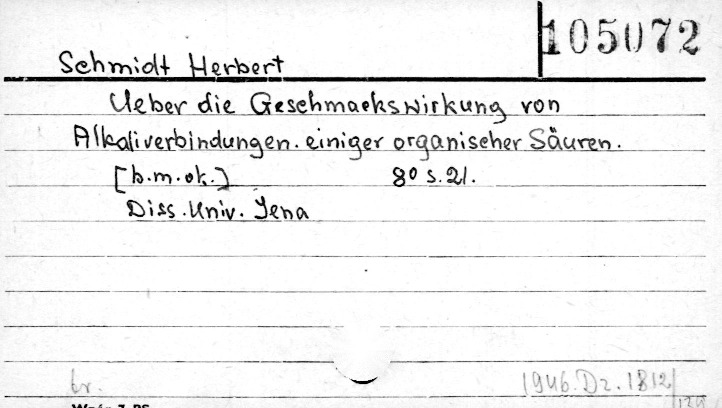 105072
Schmidt Herbert
Ueber die Geschmackswirkung von
Alkaliverbindungen. einiger organischer Säuren.
[b.m.ok.] 8° s. 21.
Diss. Univ. Jena
br. 1946. Dz. 1812/